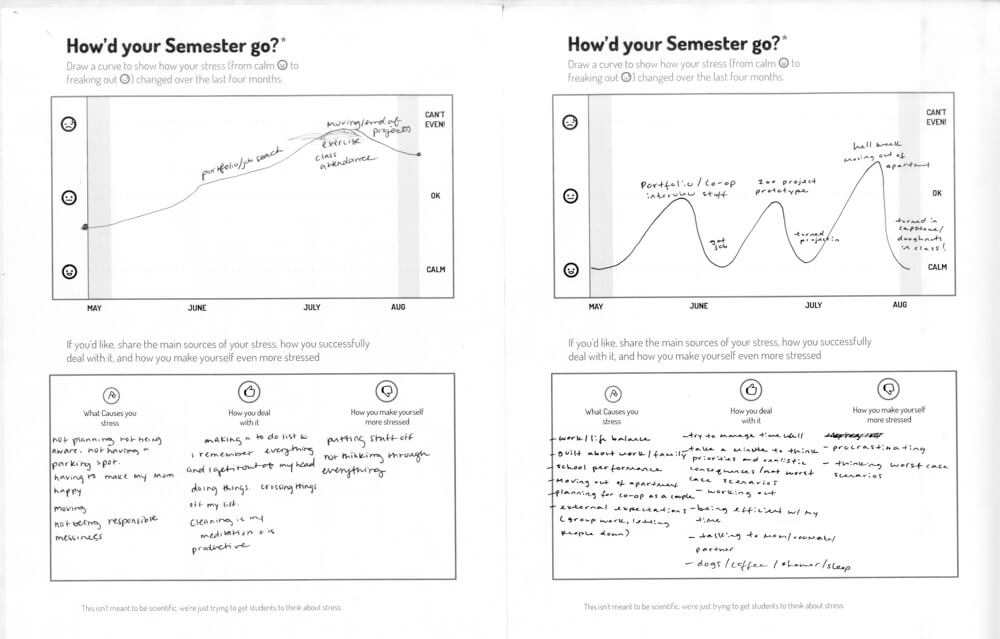 How'd your Semester go?*
Draw a curve to show how your stress (from calm to
freaking out ) changed over the last four months.
moving/end of
projects
exercise
class
attendance
portfolio/job search
CAN'T
EVEN!
OK
CALM
MAY
JUNE
JULY
AUG
If you'd like, share the main sources of your stress, how you successfully
deal with it, and how you make yourself even more stressed
What Causes you
stress
not planning, not being
aware. not having a
parking spot.
having to make my mom
happy
moving
not being responsible
messiness
How you deal
with it
making a to do list so
i remember everything
and I get it out of my head
doing things. crossing things
off my list.
cleaning is my
meditation + is
productive
How you make yourself
more stressed
putting stuff off
not thinking through
everything
This isn't meant to be scientific, we're just trying to get students to think about stress.
How'd your Semester go?*
Draw a curve to show how your stress (from calm to
freaking out ) changed over the last four months.
Portfolio/co-op
interview stuff
got
job
200 project
prototype
turned
project in
hell week
moving out of
apartment
turned in
capstone/
doughnuts
in class!
CAN'T
EVEN!
OK
CALM
MAY
JUNE
JULY
AUG
If you'd like, share the main sources of your stress, how you successfully
deal with it, and how you make yourself even more stressed
What Causes you
stress
- work/life balance
- guilt about work/family
- school performance
- moving out of apartment
- planning for co-op as a couple
- external expectations
(group work, letting
people down)
How you deal
with it
- try to manage time well
- take a minute to think
priorities and realistic
consequences/not worst
case scenarios
- working out
- being efficient w/ my
time
- talking to mom/roommate/
partner
- dogs/coffee/shower/sleep
How you make yourself
more stressed
- procrastinating
- thinking worst case
scenarios
This isn't meant to be scientific, we're just trying to get students to think about stress.